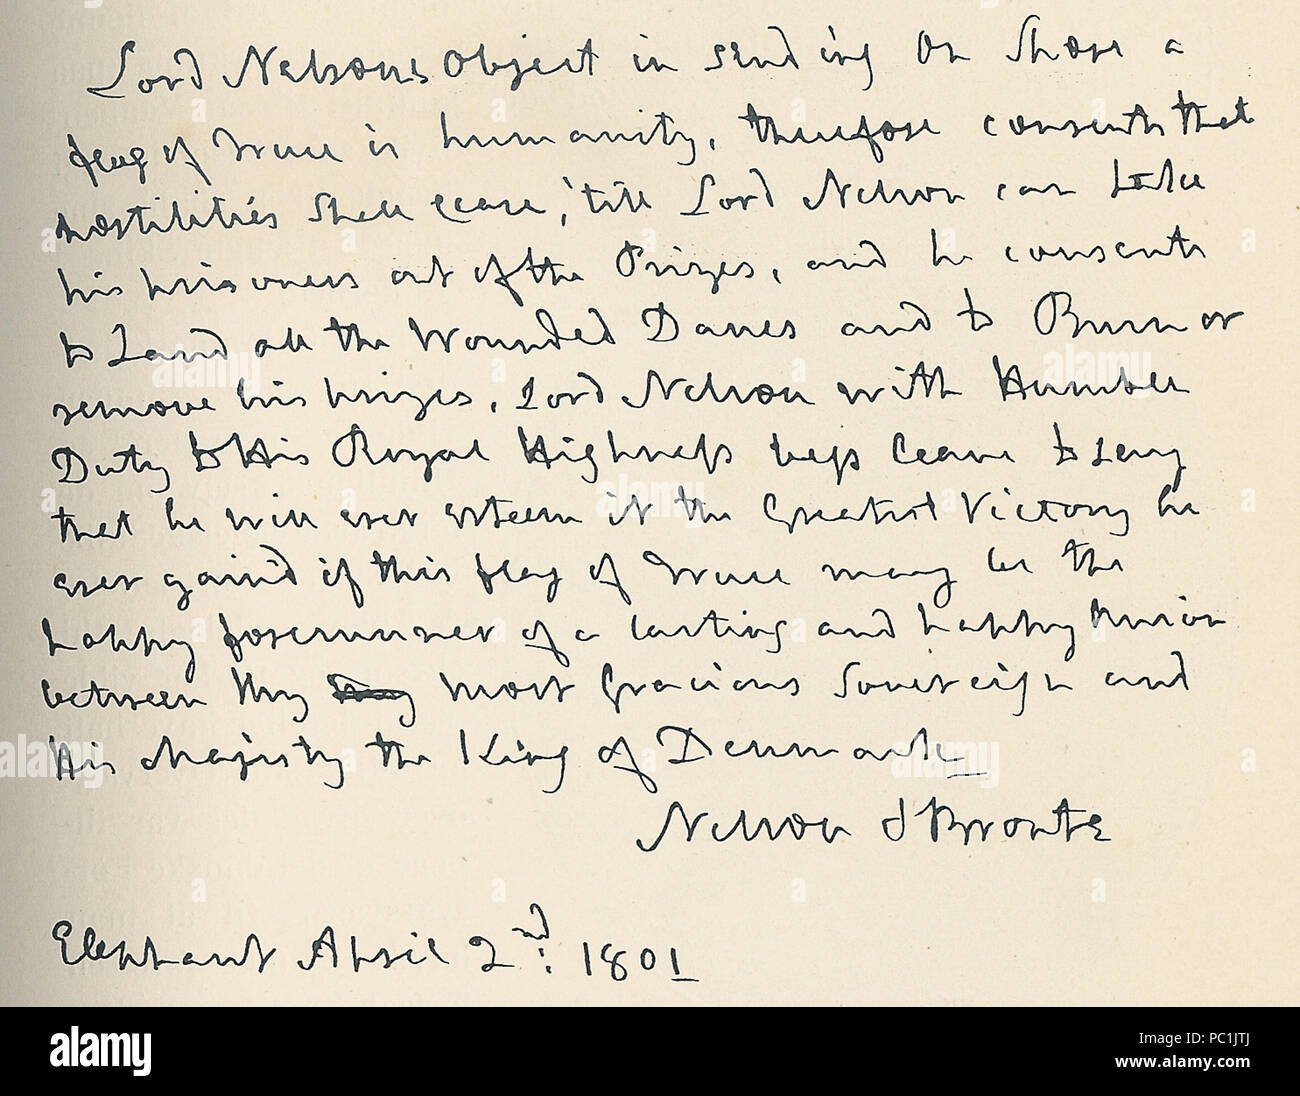 Lord Nelsons object in sending on Shore a
flag of Truce is humanity, therefore consents that
hostilities Shall cease, 'till Lord Nelson can take
his prisoners out of the Prizes, and he consents
to Land all the Wounded Danes and to Burn or
remove his prizes, Lord Nelson with Humble
Duty to His Royal Highness begs leave to say
that he will ever esteem it the Greatest Victory he
ever gain'd if this flag of Truce may be the
happy forerunner of a lasting and happy Union
between my most Gracious Sovereign and
His Majesty the King of Denmark
Nelson & Bronte
Elephant April 2nd: 1801
alamy
Image ID: PC1JTJ
www.alamy.com